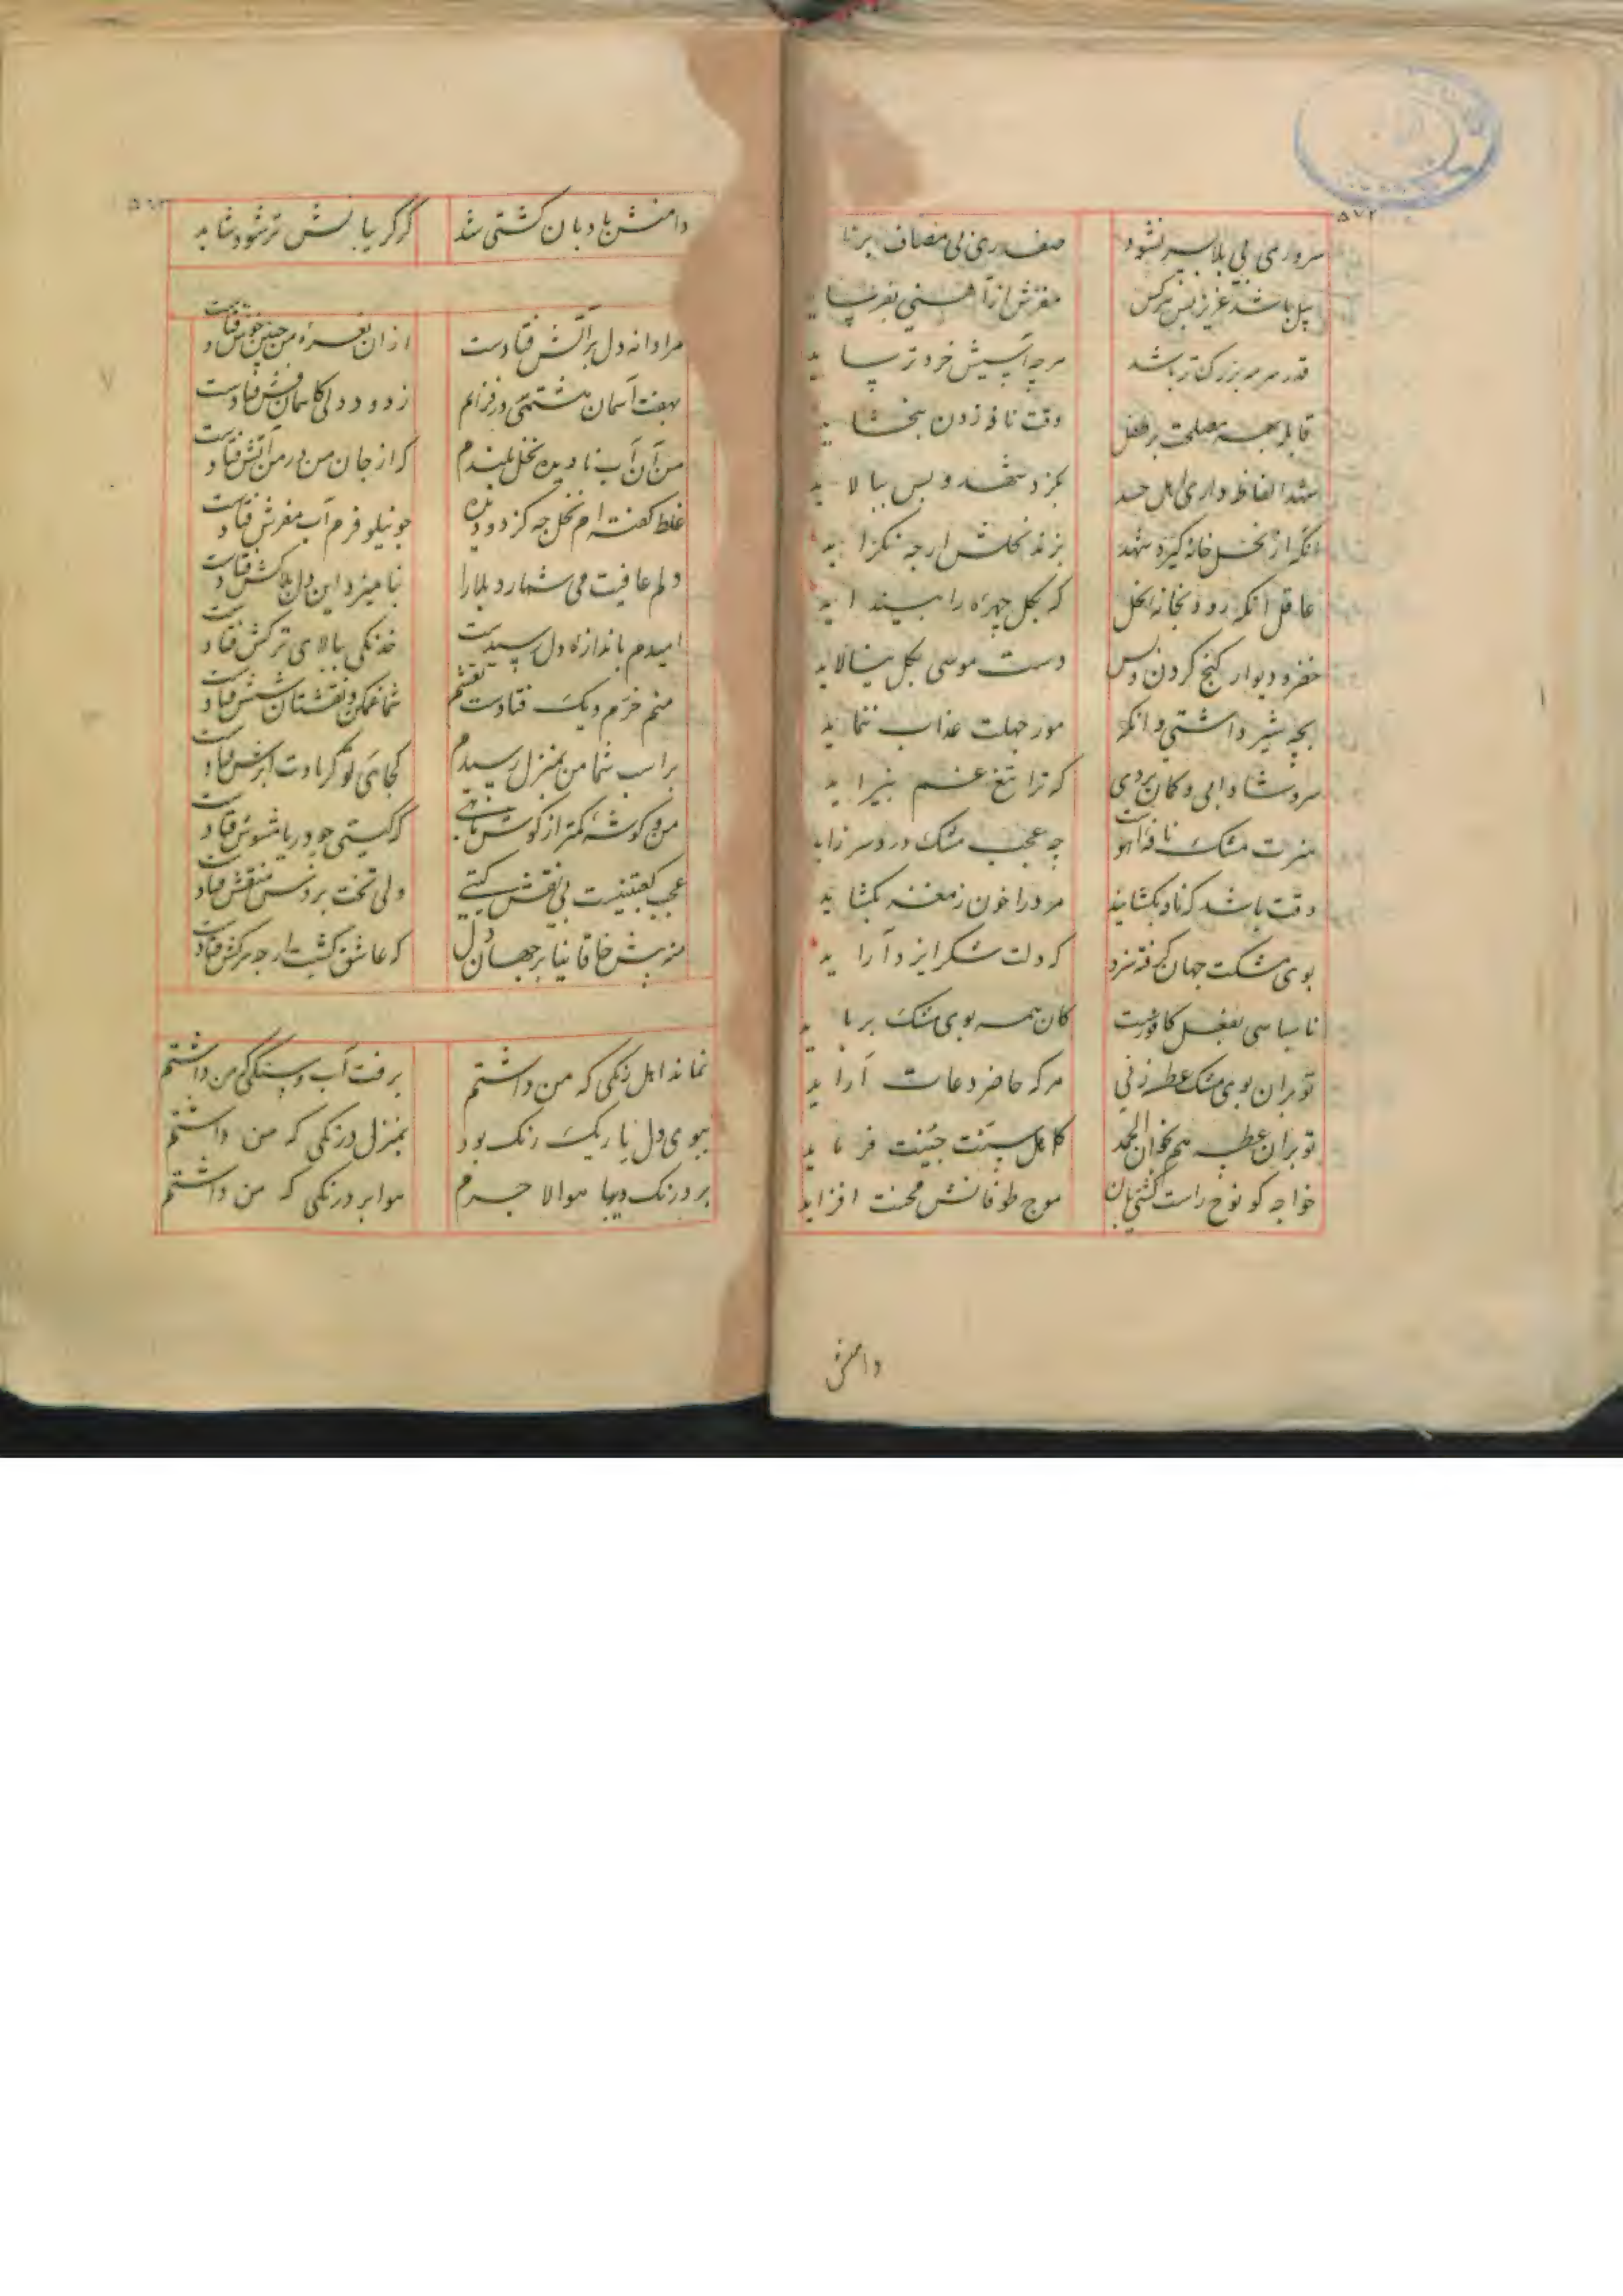 ۵۷۲
سروری بی بلا بسر نشود صفدری بی مصاف برناید
پیل باشد عزیز پس هرکس مغزش از آهنی بفرساید
قدر سرمه بزرک تر باشد هر چه آسیبش خردتر ساید
قابله بهر مصلحت بر طفل وقت نافه زدن نبخشاید
شهد الفاظ داری اهل حسد بجز د شهد و بس بیالاید
انکه از نحل خانه کیرد شهد بزند نحلش ارچه نکزاید
عاقل انکه رود بخانه نحل که بکل چهره را بینداید
خضر و دیوار کنج کردن و بس دست موسی بکل بیالاید
بچه شیر داشتی وانکه مور جهلت عذاب ننماید
سرو شادابی و کمان بردی که ترا تیغ غم بپیراید
سرت مشک نافه آهو چه عجب مشک دردسر زاید
وقت باشد که ناد بکشایند مرد را خون ز مغز بکشاید
بوی مشکت جهان کرفته سزد که دلت شکر ایزد آراید
ناسپاسی بفعل کافورست کان همه بوی مشک برباید
تو بران بوی مشک عطسه زنی هر که حاضر دعات آراید
تو بران عطسه هم بخوان الحمد کاهل سنت چنینت فرماید
خواجه کو نوح راست کشتی بان موج طوفانش محنت افزاید
دامنش
دامنش بادبان کشتی شد کر کریبانش تر شود شاید
مرا دانه دل بر آتش فتادست ازان نعره من چنین خوش فتادست
بهفت آسمان هشتمی در فزایم ز دود دلی کاسمان وش فتادست
من آن آب نادیده نخل بلندم که از جان من در من آتش فتادست
غلط کفته ام نخل چه کز دو دیده چو نیلوفرم آب مفرش فتادست
دلم عافیت می شمارد بلا را نیامیزد این دل بلاکش فتادست
امیدم باندازه دل رسیدست خدنکی ببالای ترکش فتادست
منم خرم و یک فتادست نقشم شما غمکن و نقشتان شش فتادست
بر اسب شما من بمنزل رسیدم کجایی تو کر بادت ابرش فتادست
من و کوشه کمتر از کوش ماهی که کیتی چو دریا مشوش فتادست
عجب کعبتینیست بی نقش کیتی ولی تخت بردش منقش فتادست
منه پیش خاقانیا بر جهان دل که عاشق کشست ارچه سرکش فتادست
نماند اهل رنکی که من داشتم برفت آب و سنکی که من داشتم
ببوی دل یار یک رنک بود بمنزل درنکی که من داشتم
هوا بر درنکی که من داشتم